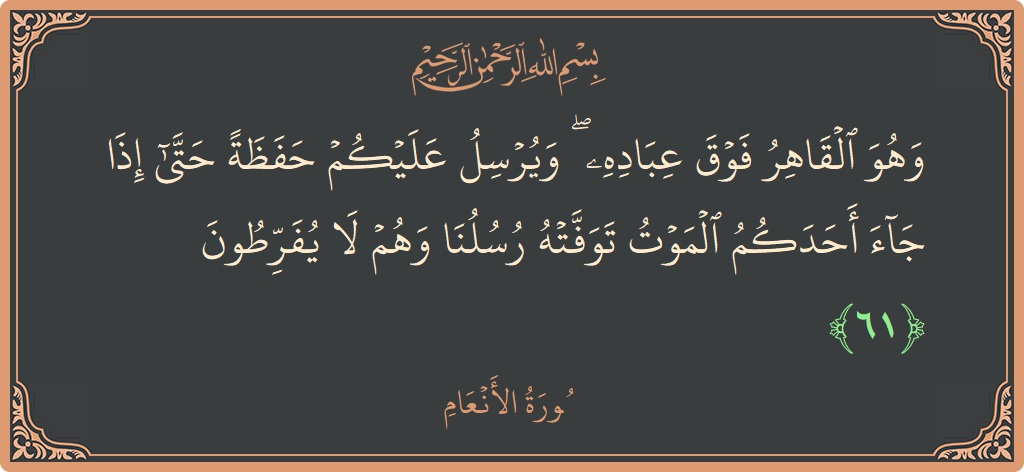 بِسْمِ اللَّهِ الرَّحْمَٰنِ الرَّحِيمِ
وَهُوَ ٱلْقَاهِرُ فَوْقَ عِبَادِهِۦ ۖ وَيُرْسِلُ عَلَيْكُمْ حَفَظَةً حَتَّىٰٓ إِذَا
جَآءَ أَحَدَكُمُ ٱلْمَوْتُ تَوَفَّتْهُ رُسُلُنَا وَهُمْ لَا يُفَرِّطُونَ
﴿٦١﴾
سُورَةُ الأَنْعَامِ